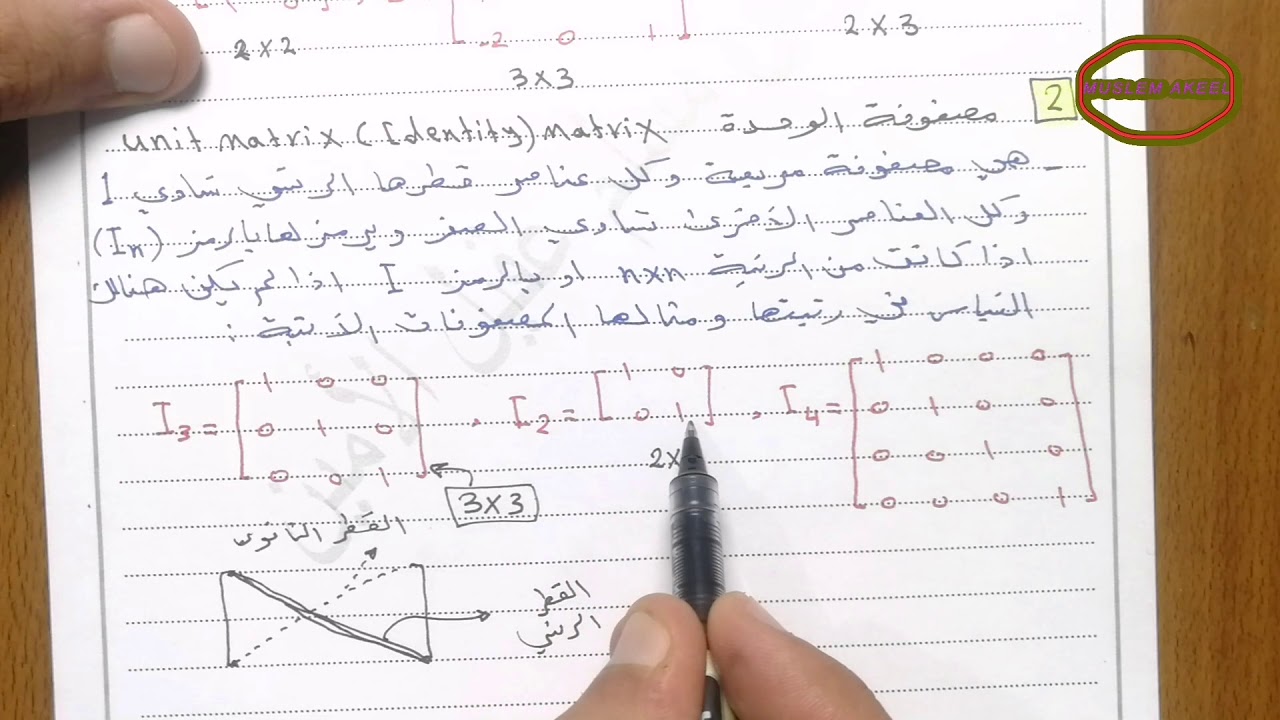 -2 0 1
2 x 2
2 x 3
3 x 3
2 مصفوفة الوحدة unit matrix (Identity) matrix
MUSLEM AKEEL
- هي مصفوفة مربعة وكل عناصر قطرها الرئيسي تساوي 1
وكل العناصر الأخرى تساوي الصفر ويرمز لها بالرمز (In)
اذا كانت من الرتبة nxn او بالرمز I اذا لم يكن هنالك
التباس في رتبتها ومثالها المصفوفات الاتية :
I3 = [ 1 0 0 , I2 = [ 1 0 ] , I4 = [ 1 0 0 0
0 1 0 0 1 0 1 0 0
0 0 1 ] 2x 0 0 1 0
3x3 0 0 0 1 ]
القطر الثانوي
القطر
الرئيسي